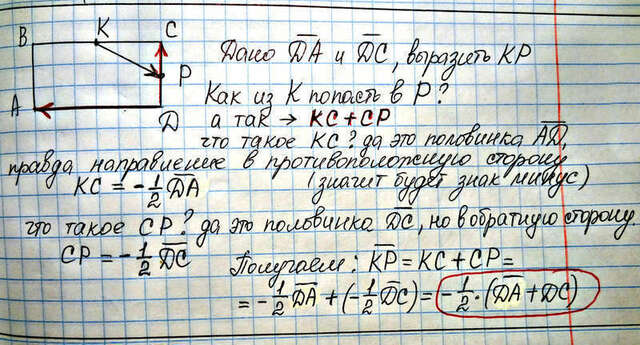 B K C
P
A D
Дано D̅A̅ и D̅C̅, выразить KP
Как из K попасть в P?
а так → KC+CP
что такое KC? да это половинка A̅D̅,
правда направление в противоположную сторону
KC = -1/2 D̅A̅ (значит будет знак минус)
что такое CP? да это половинка D̅C̅, но в обратную сторону.
CP = -1/2 D̅C̅
Получаем: K̅P̅ = KC + CP =
= -1/2 D̅A̅ + (-1/2 D̅C̅) = -1/2 · (D̅A̅ + D̅C̅)